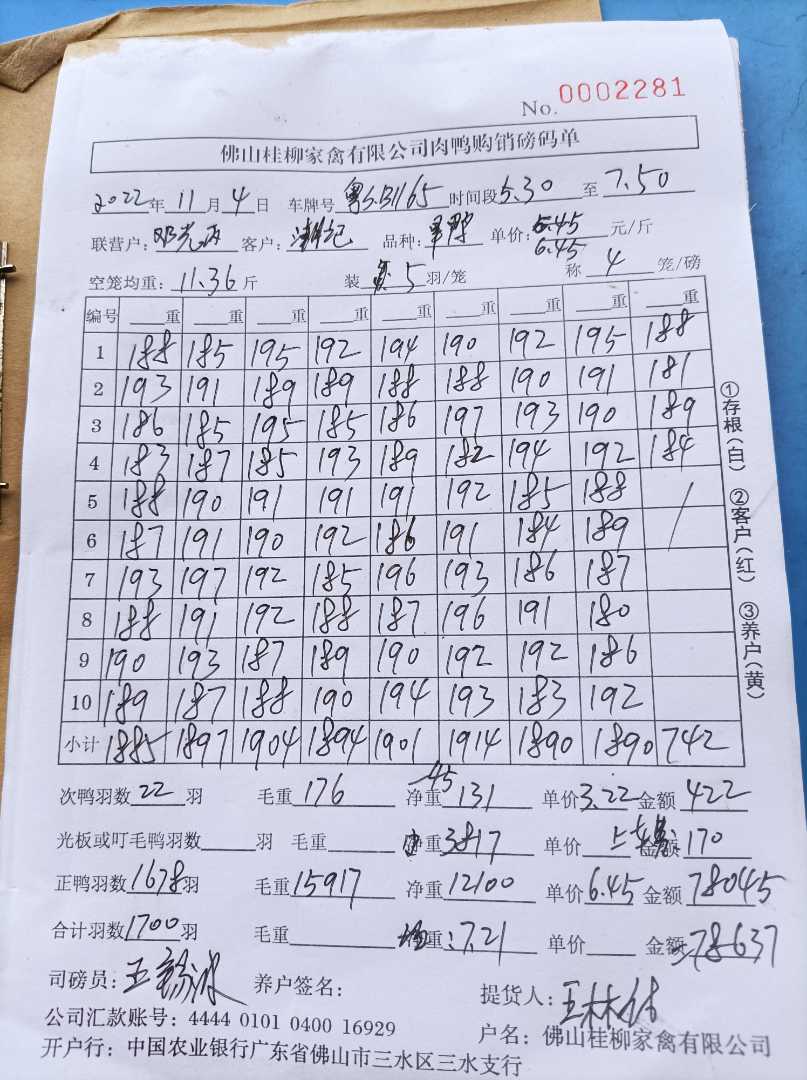 No. 0002281
佛山桂柳家禽有限公司肉鸭购销磅码单
2022年 11月 4日 车牌号 粤S.B1165 时间段 5.30 至 7.50
联营户: 客户: 品种: 单价: 5.45 6.45 元/斤
空笼均重: 11.36 斤 装 5 羽/笼 称 4 笼/磅
编号 重 重 重 重 重 重 重 重 重
1 188 185 195 192 194 190 192 195 188
2 193 191 189 189 188 188 190 191 181
3 186 185 195 185 186 197 193 190 189
4 183 187 185 193 189 182 194 192 184
5 188 190 191 191 191 192 185 188
6 187 191 190 192 186 191 184 189
7 193 197 192 185 196 193 186 187
8 188 191 192 188 187 196 191 180
9 190 193 187 189 190 192 192 186
10 189 187 188 190 194 193 183 192
小计 1885 1897 1904 1894 1901 1914 1890 1890 742
①存根(白) ②客户(红) ③养户(黄)
次鸭羽数 22 羽 毛重 176 净重 45 131 单价 3.22 金额 422
光板或叮毛鸭羽数 羽 毛重 重 3817 单价 上车费: 170
正鸭羽数 1678 羽 毛重 15917 净重 12100 单价 6.45 金额 78045
合计羽数 1700 羽 毛重 均重: 7.21 单价 金额 78637
司磅员: 养户签名: 提货人:
公司汇款账号: 4444 0101 0400 16929 户名: 佛山桂柳家禽有限公司
开户行: 中国农业银行广东省佛山市三水区三水支行